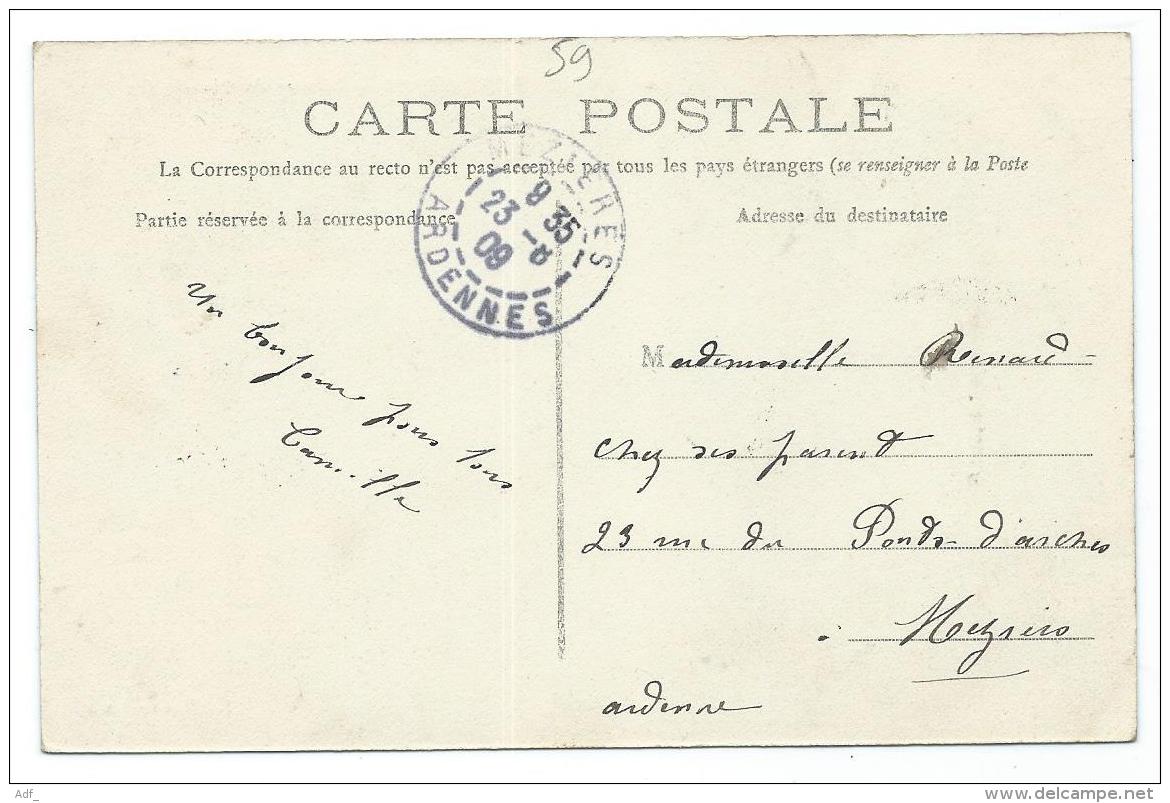 59
CARTE POSTALE
La Correspondance au recto n'est pas acceptée par tous les pays étrangers (se renseigner à la Poste
Partie réservée à la correspondance
Adresse du destinataire
MEZIERES
9 35
23 -8
09
ARDENNES
Un bonjour pour tous
Camille
Mademoiselle Renard
chez ses parent
23 rue du Ponds d'arches
à Mezieres
ardenne
Adf_
delcampe.net